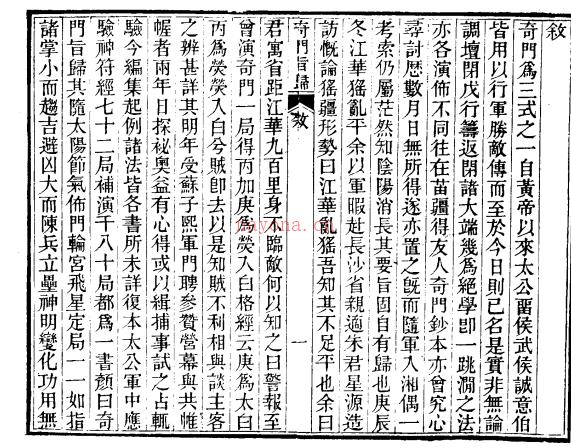 敘
奇門為三式之一自黃帝以來太公留侯武侯誠意伯
皆用以行軍勝敵傳而至於今日則已名是實非無論
調壇閉戊行籌返閉諸大端幾為絕學即一跳澗之法
亦各演佈不同往在苗疆得友人奇門鈔本亦曾究心
尋討歷數月日無所得遂亦置之既而隨軍入湘偶一
考索仍屬茫然知陰陽消長其要旨固自有歸也庚辰
冬江華猺亂平余以軍暇赴長沙省親適朱君星源造
訪慨論猺疆形勢曰江華亂猺吾知其不足平也余曰
奇門旨歸 敘 一
君寓省距江華九百里身不臨敵何以知之曰警報至
曾演奇門一局得丙加庚為熒入白格經云庚為太白
丙為熒熒入白兮賊即去以是知賊不利相與談主客
之辨甚詳其明年受蘇子熙軍門聘參贊營幕與共帷
幄者兩年日探祕奧益有心得或以緝捕事試之占輒
驗今編集起例諸法皆各書所未詳復本太公軍中應
驗神符經七十二局補演千八十局都為一書顏曰奇
門旨歸其隨太陽節氣佈門輪宮飛星定局一一如指
諸掌小而趨吉避凶大而陳兵立壘神明變化功用無
nayona.cn